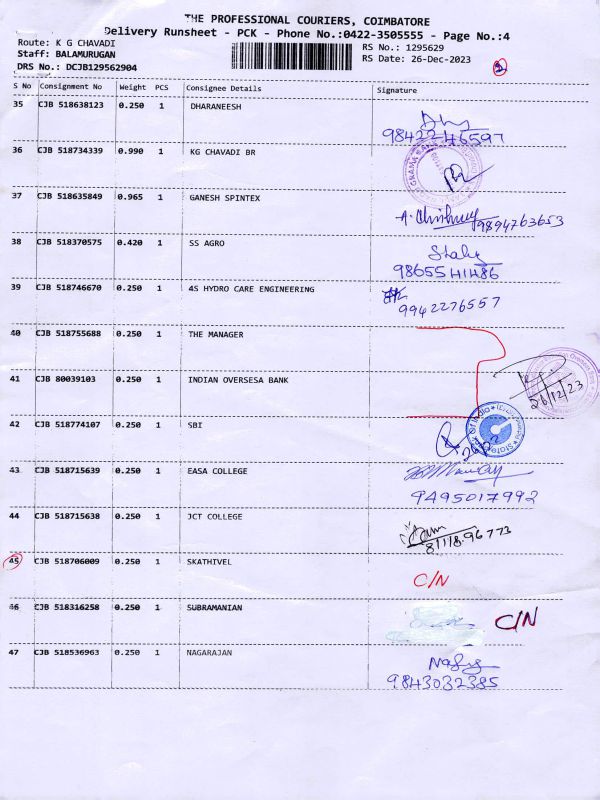 THE PROFESSIONAL COURIERS, COIMBATORE
Delivery Runsheet - PCK - Phone No.:0422-3505555 - Page No.:4
Route: K G CHAVADI
Staff: BALAMURUGAN
DRS No.: DCJB129562904
RS No.: 1295629
RS Date: 26-Dec-2023
2
S No Consignment No Weight PCS Consignee Details Signature
35 CJB 518638123 0.250 1 DHARANEESH
9842246597
36 CJB 518734339 0.990 1 KG CHAVADI BR
37 CJB 518635849 0.965 1 GANESH SPINTEX
9894763653
38 CJB 518370575 0.420 1 SS AGRO
9865541486
39 CJB 518746670 0.250 1 4S HYDRO CARE ENGINEERING
9942276557
40 CJB 518755688 0.250 1 THE MANAGER
41 CJB 80039103 0.250 1 INDIAN OVERSESA BANK
26/12/23
42 CJB 518774107 0.250 1 SBI
State Of India
43 CJB 518715639 0.250 1 EASA COLLEGE
9495017992
44 CJB 518715638 0.250 1 JCT COLLEGE
8111896773
45 CJB 518706009 0.250 1 SKATHIVEL
C/N
46 CJB 518316258 0.250 1 SUBRAMANIAN
C/N
47 CJB 518536963 0.250 1 NAGARAJAN
9843032385